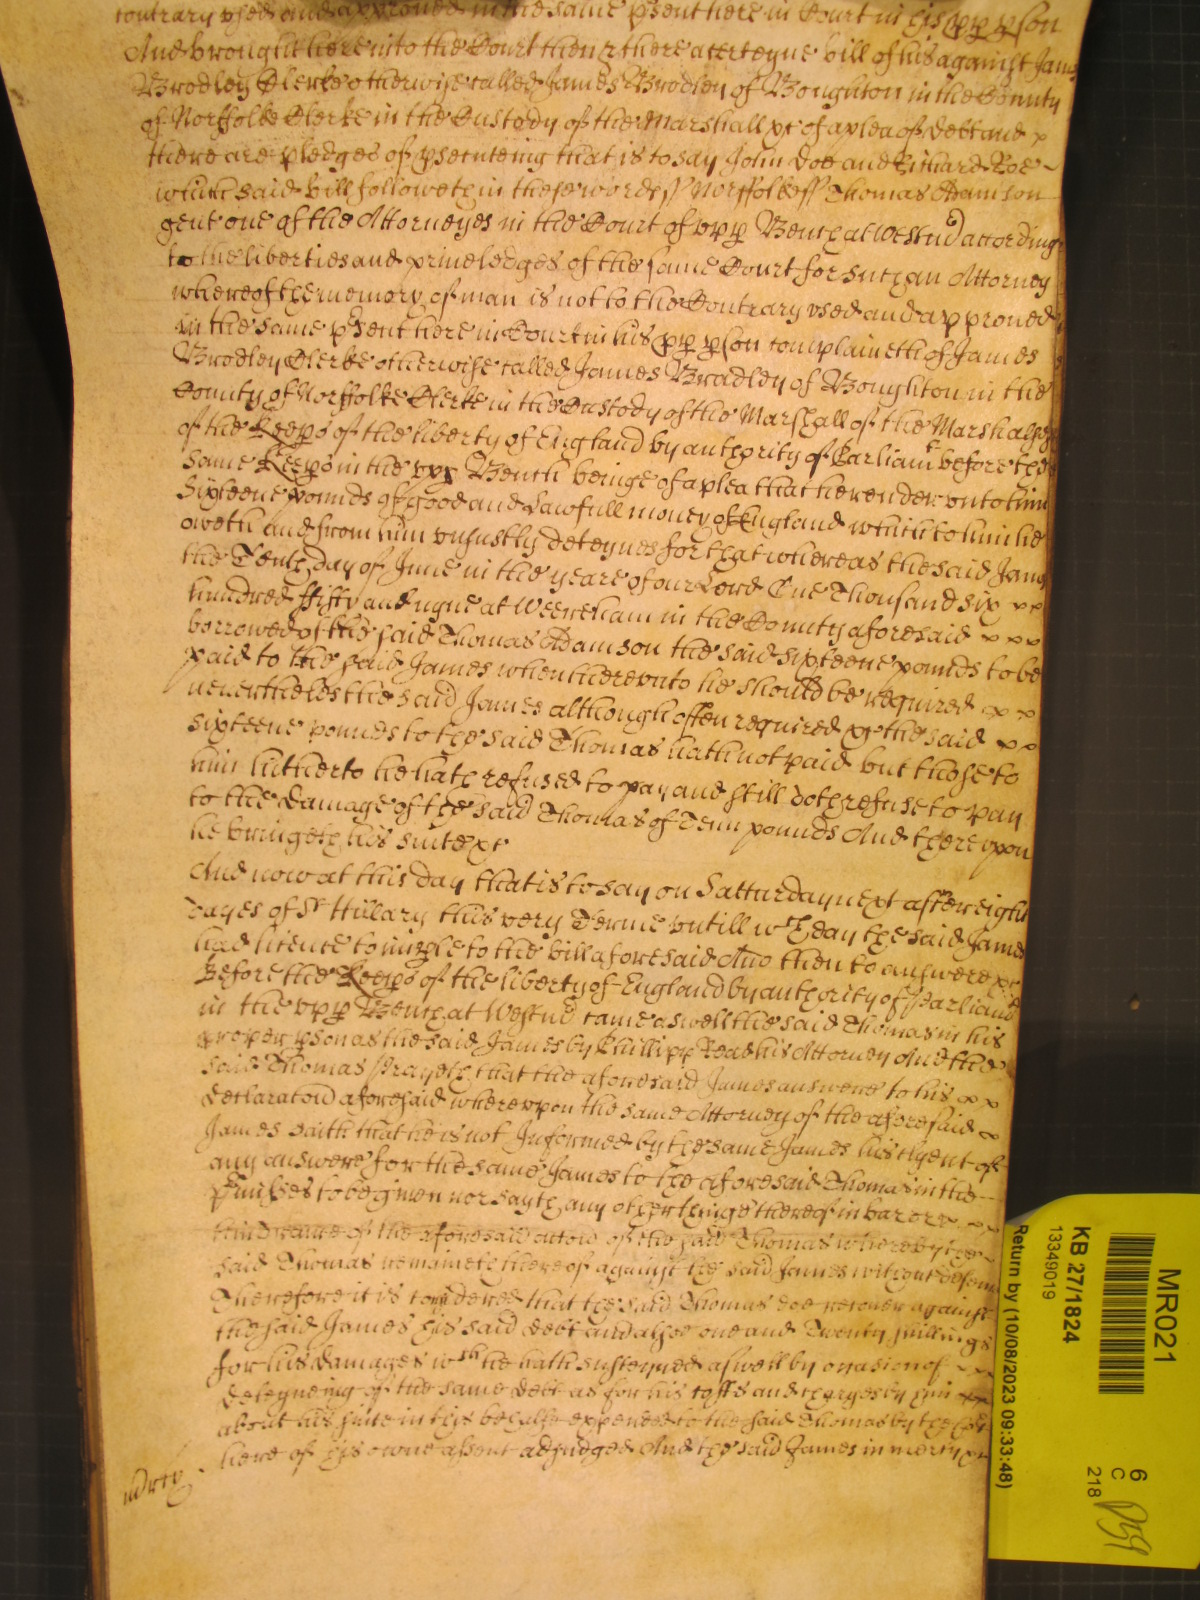 contrary vsed and approved in the same p'sent here in Court in his pp pson
And brought here into the Court then & there a certeyne bill of his against James
Brodley Clerke otherwise called James Brodley of Boughton in the County
of Norffolke Clerke in the Custody of the Marshall &c of a plea of debt and x
there are pledges of psecuteing that is to say John Doe and Richard Roe
which said bill followeth in these wordes ss Norffolke ss Thomas Adamson
gent one of the Attorneyes in the Court of vpp Bench at Westm'd according
to the liberties and priveledges of the same Court for such an Attorney
whereof the memory of man is not to the Contrary vsed and approved
in the same p'sent here in Court in his pp pson complaineth of James
Brodley Clerke otherwise called James Bradley of Boughton in the
County of Norffolke Clerke in the Custody of the Marshall of the Marshalsey
of the Keeps of the liberty of England by authority of Parliamt before the
same Keeps in the vpp Bench beinge of a plea that he render vnto him
Sixteene pounds of good and Lawfull money of England which to him he
oweth and from him vniustly deteynes for that whereas the said James
the Tenth day of June in the yeare of our Lord One Thousand six x x
hundred ffifty and nyne at Weereham in the County aforesaid x x x
borrowed of the said Thomas Adamson the said sixteene pounds to be
paid to the said James when herevnto he should be required x x
neverthelesse the said James although often required &c the said x x
sixteene pounds to the said Thomas hath not paid but those to
him hitherto he hath refused to pay and still doth refuse to pay
to the damage of the said Thomas of Tenn pounds And therevpon
he bringeth his suite &c
And now at this day that is to say on Satturday next after eight
dayes of St Hillary this very Terme vntill wch day the said James
had licence to imple to the bill aforesaid And then to answere &c
Before the Keeps of the liberty of England by authority of Parliamt
in the vpp Bench at Westm'd came aswell the said Thomas in his
proper pson as the said James by Phillipp Read his Attorney And the
said Thomas Prayeth that the aforesaid James answere to his x x
declaracon aforesaid wherevpon the same Attorney of the aforesaid x
James saith that he is not Informed by the same James his clyent of
any answere for the same James to the aforesaid Thomas in the
p'misses to be given nor sayth any other thinge thereof in barr or x x x
hindrance of the aforesaid accon of the said Thomas whereby the
said Thomas remaineth thereof against the said James without defence
Therefore it is considered that the said Thomas doe recover against
the said James his said debt and alsoe one and Twenty shillings
for his damages wch he hath susteyned aswell by occasion of
deteyneing of the same debt as for his costs and charges by him
about his suite in this behalfe expended to the said Thomas by the Court
here of his owne assent adjudged And the said James in mercy &c
mercy
MR021
KB 27/1824
13349019
Return by (10/08/2023 09:33:48)
6
C
218